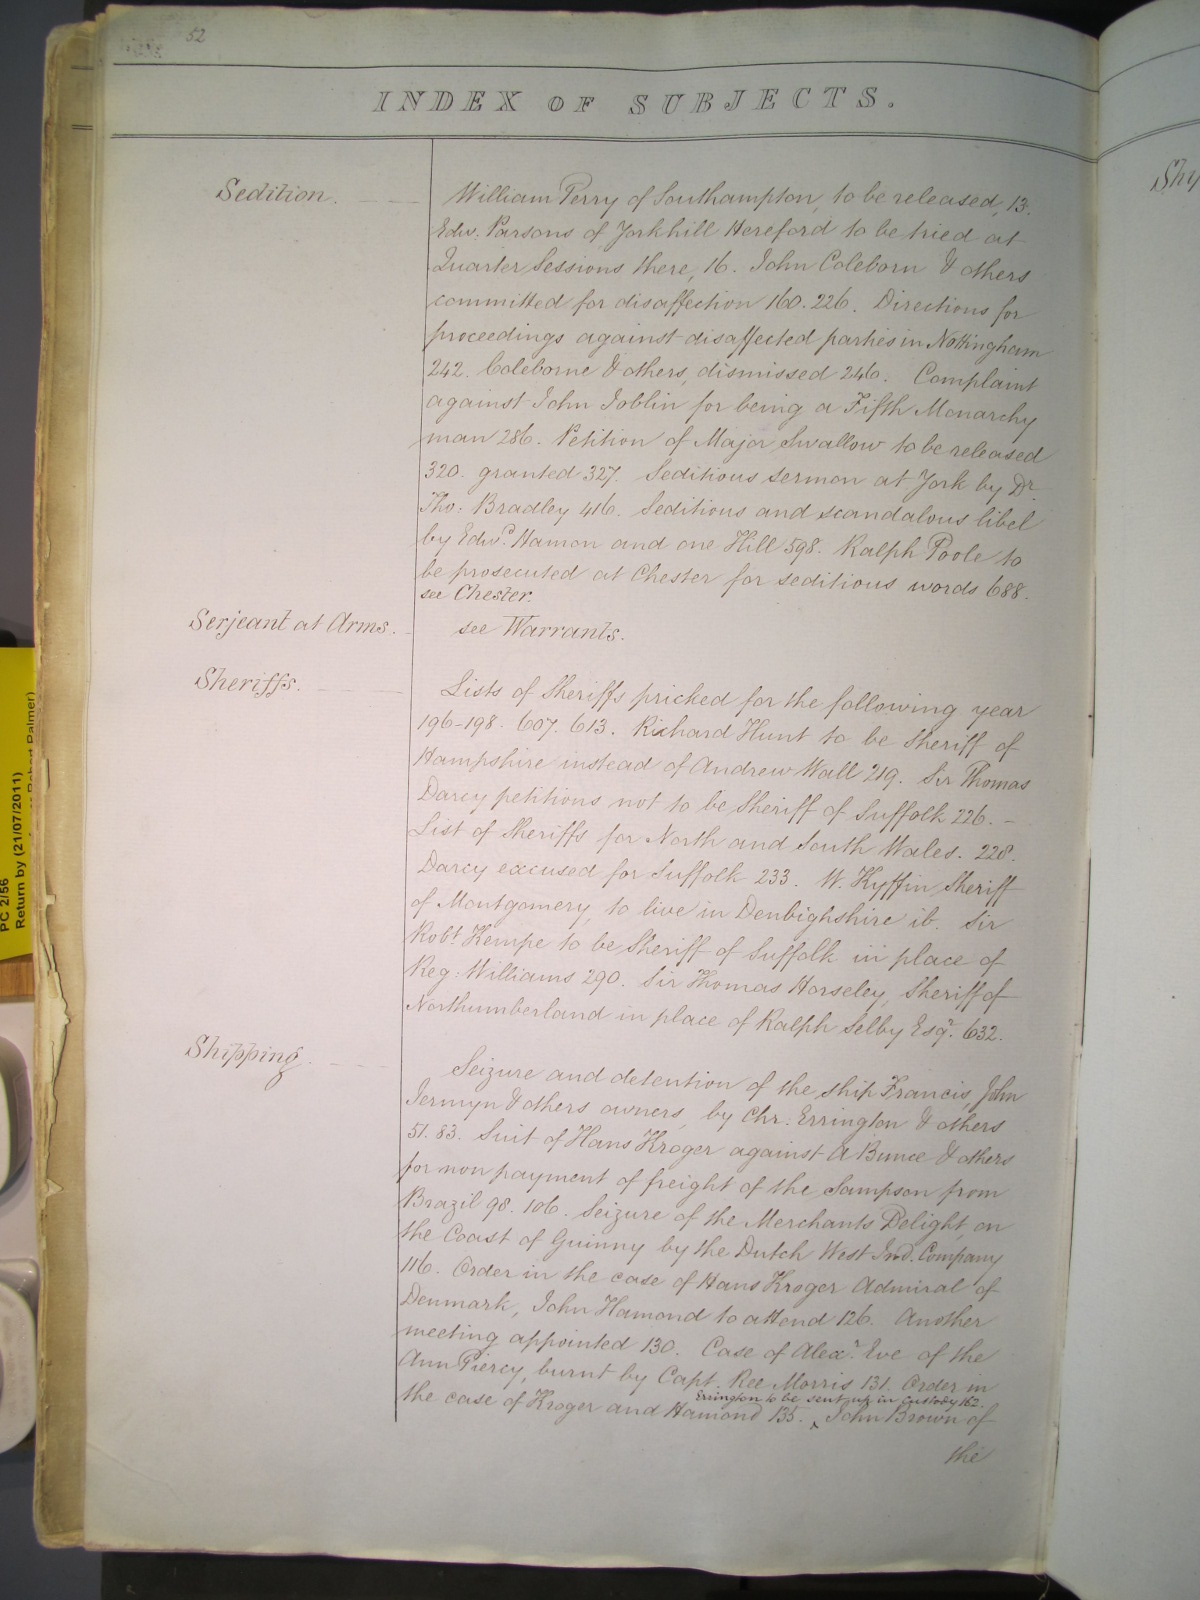 52
INDEX OF SUBJECTS.
Sedition.
William Perry of Southampton, to be released, 13.
Edw. Parsons of Yorkhill Hereford to be tried at
Quarter Sessions there, 16. John Coleborn & others
committed for disaffection 160. 226. Directions for
proceedings against disaffected parties in Nottingham
242. Coleborne & others, dismissed 246. Complaint
against John Joblin for being a Fifth Monarchy
man 286. Petition of Major Swallow to be released
320. granted 327. Seditious sermon at York by Dr.
Tho: Bradley 416. Seditious and scandalous libel
by Edwd. Hamon and one Hill 598. Ralph Poole to
be prosecuted at Chester for seditious words 688.
see Chester.
Serjeant at Arms.
see Warrants.
Sheriffs.
Lists of Sheriffs pricked for the following year
196-198. 607. 613. Richard Hunt to be Sheriff of
Hampshire instead of Andrew Wall 219. Sir Thomas
Darcy petitions not to be Sheriff of Suffolk 226. -
List of Sheriffs for North and South Wales. 228.
Darcy excused for Suffolk 233. W. Kyffin Sheriff
of Montgomery, to live in Denbighshire ib. Sir
Robt. Kempe to be Sheriff of Suffolk in place of
Reg: Williams 290. Sir Thomas Horseley, Sheriff of
Northumberland in place of Ralph Selby Esqr. 632.
Shipping
Seizure and detention of the ship Francis, John
Jermyn & others owners, by Chr: Errington & others
51. 83. Suit of Hans Kroger against A Bunce & others
for non payment of freight of the Sampson from
Brazil 98. 106. Seizure of the Merchants Delight, on
the Coast of Guinny by the Dutch West Ind. Company
116. Order in the case of Hans Kroger Admiral of
Denmark, John Hamond to attend 126. Another
meeting appointed 130. Case of Alexr. Eve of the
Ann Piercy, burnt by Capt. Ree Morris 131. Order in
Errington to be sent up in custody 162.
the case of Kroger and Hamond 135. ‸ John Brown of
the
PC 2/56
Return by (21/07/2011)
Robert Palmer)